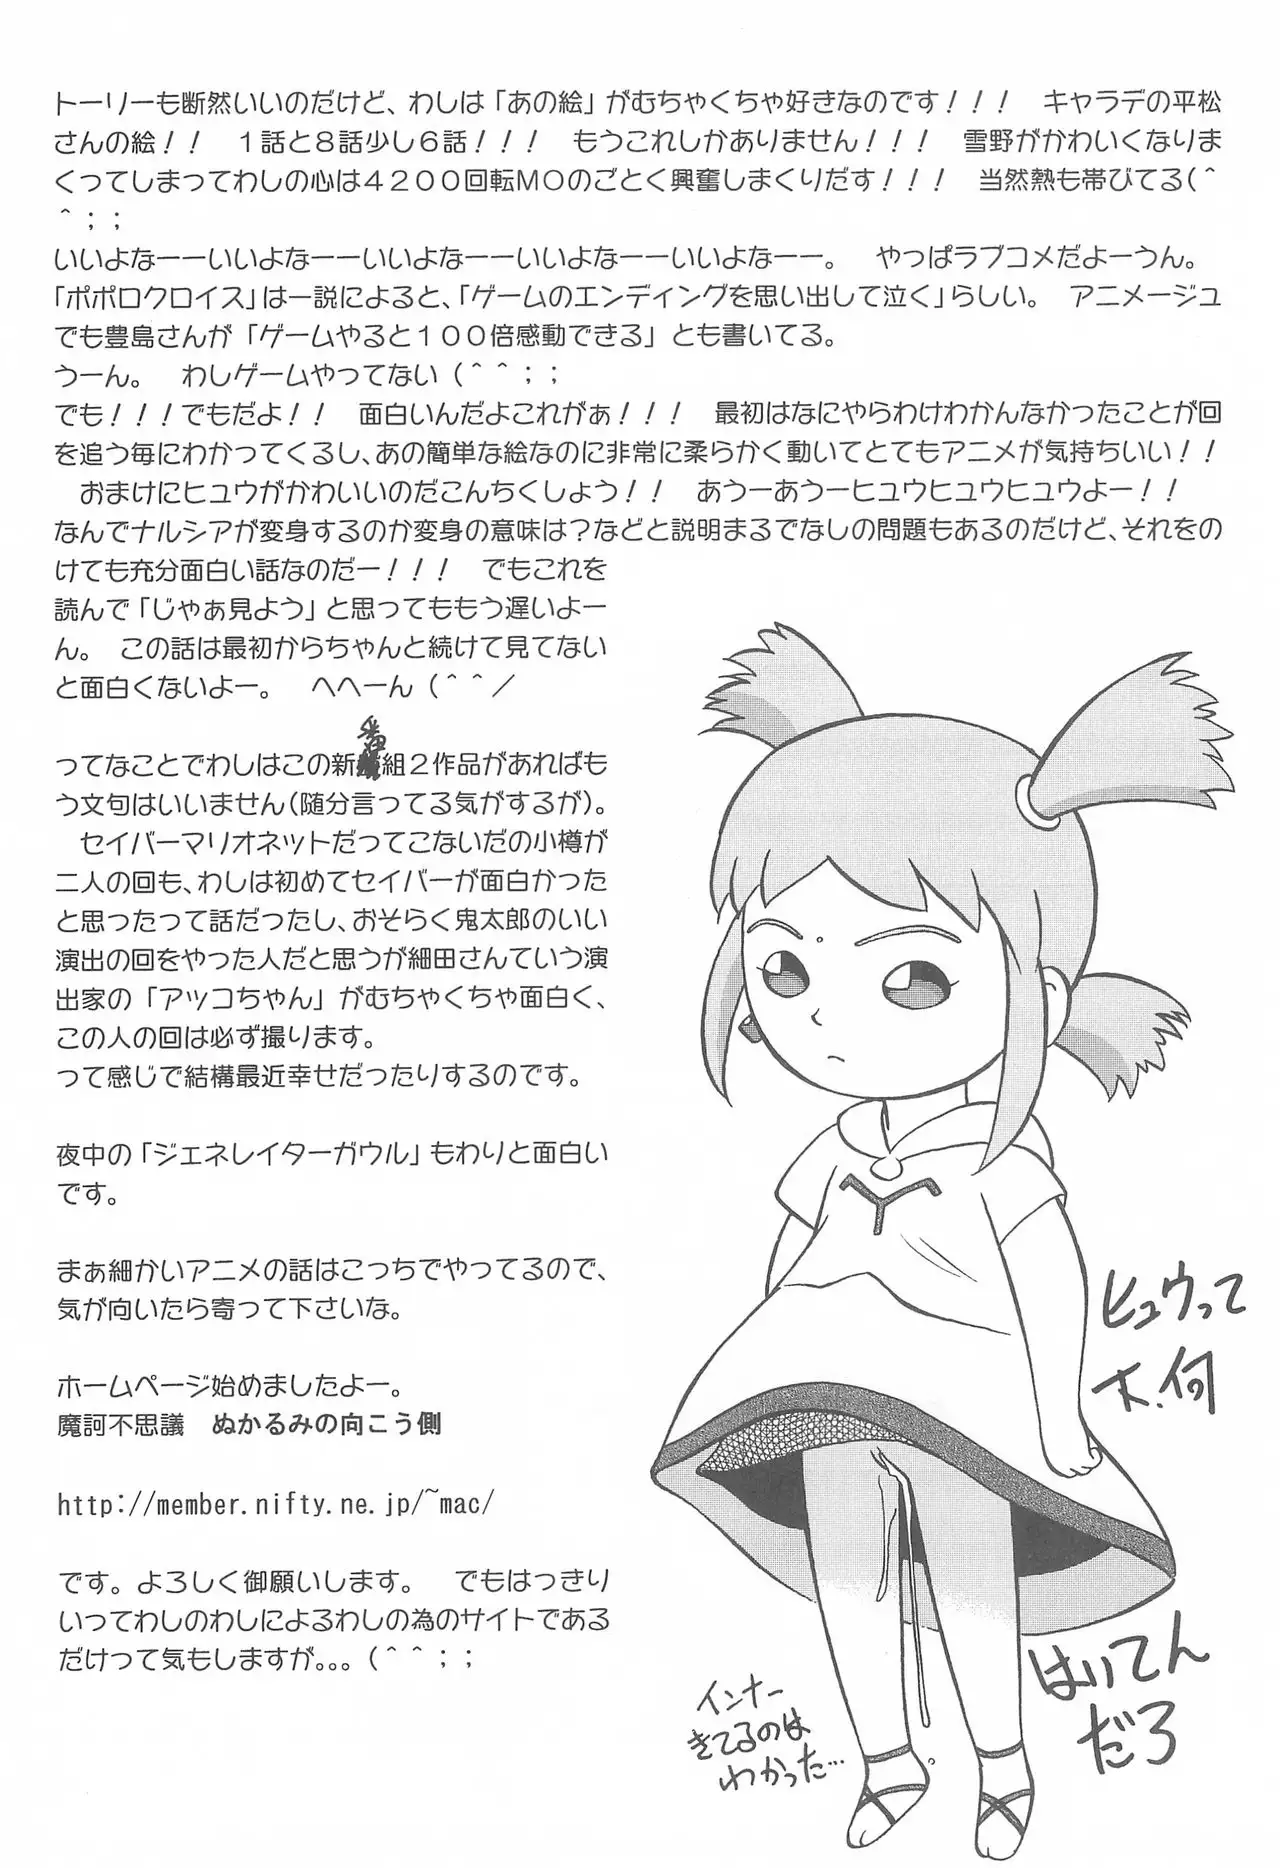 トーリーも断然いいのだけど、わしは「あの絵」がむちゃくちゃ好きなのです！！！　キャラデの平松
さんの絵！！　１話と８話少し６話！！！　もうこれしかありません！！！　雪野がかわいくなりま
くってしまってわしの心は４２００回転ＭＯのごとく興奮しまくりだす！！！　当然熱も帯びてる(＾
＾；；
いいよなーーいいよなーーいいよなーーいいよなーーいいよなーー。　やっぱラブコメだよーうん。
「ポポロクロイス」は一説によると、「ゲームのエンディングを思い出して泣く」らしい。　アニメージュ
でも豊島さんが「ゲームやると１００倍感動できる」とも書いてる。
うーん。　わしゲームやってない（＾＾；；
でも！！！でもだよ！！　面白いんだよこれがぁ！！！　最初はなにやらわけわかんなかったことが回
を追う毎にわかってくるし、あの簡単な絵なのに非常に柔らかく動いてとてもアニメが気持ちいい！！
　おまけにヒュウがかわいいのだこんちくしょう！！　あうーあうーヒュウヒュウヒュウよー！！
なんでナルシアが変身するのか変身の意味は？などと説明まるでなしの問題もあるのだけど、それをの
けても充分面白い話なのだー！！！　でもこれを
読んで「じゃぁ見よう」と思ってももう遅いよー
ん。　この話は最初からちゃんと続けて見てない
と面白くないよー。　へへーん（＾＾／
ってなことでわしはこの新番組２作品があればも
う文句はいいません(随分言ってる気がするが)。
　セイバーマリオネットだってこないだの小樽が
二人の回も、わしは初めてセイバーが面白かった
と思ったって話だったし、おそらく鬼太郎のいい
演出の回をやった人だと思うが細田さんていう演
出家の「アッコちゃん」がむちゃくちゃ面白く、
この人の回は必ず撮ります。
って感じで結構最近幸せだったりするのです。
夜中の「ジェネレイターガウル」もわりと面白い
です。
まぁ細かいアニメの話はこっちでやってるので、
気が向いたら寄って下さいな。
ホームページ始めましたよー。
魔訶不思議　ぬかるみの向こう側
http://member.nifty.ne.jp/~mac/
です。よろしく御願いします。　でもはっきり
いってわしのわしによるわしの為のサイトである
だけって気もしますが。。。（＾＾；；